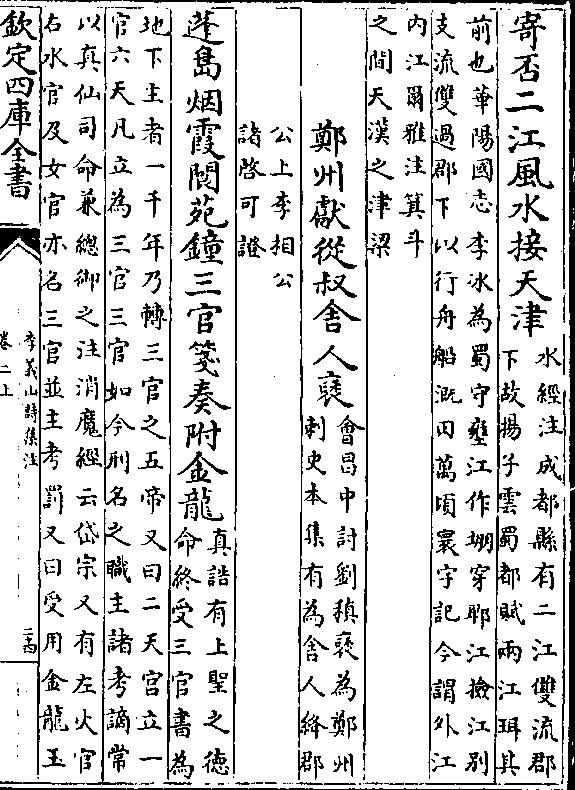 寄否二江風水接天津水經注成都縣有二江雙流郡
下故揚子雲蜀都賦兩江珥其
前也華陽國志李冰為蜀守壅江作堋穿郫江撿江別
支流雙過郡下以行舟船溉田萬頃寰宇記今謂外江
內江爾雅注箕斗
之間天漢之津梁
鄭州獻從叔舍人襃會昌中討劉稹襃為鄭州
刺史本集有為舍人絳郡
公上李相公
諸啓可證
蓬島烟霞閬苑鐘三官箋奏附金龍真誥有上聖之德
命終受三官書為
地下主者一千年乃轉三官之五帝又曰二天宮立一
官六天凡立為三官三官如今刑名之職主諸考謫常
以真仙司命兼總御之注消魔經云岱宗又有左火官
右水官及女官亦名三官並主考罰又曰受用金龍玉
欽定四庫全書
李義山詩集注
卷二上
二四